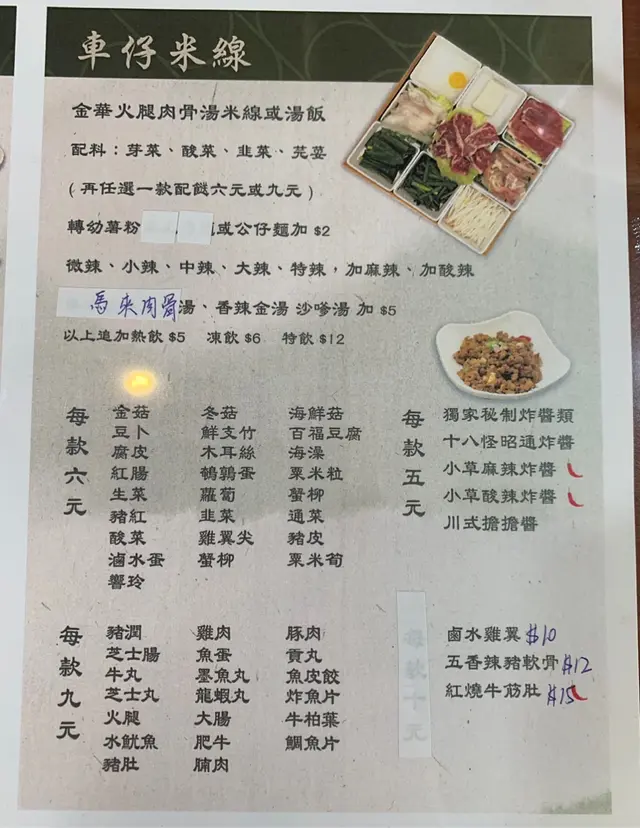 車仔米線
金華火腿肉骨湯米線或湯飯
配料：芽菜、酸菜、韭菜、芫荽
(再任選一款配餸六元或九元)
轉幼薯粉 或公仔麵加 $2
微辣、小辣、中辣、大辣、特辣，加麻辣、加酸辣
馬來肉骨湯、香辣金湯 沙嗲湯 加 $5
以上追加熱飲 $5 凍飲 $6 特飲 $12
每款六元
金菇 冬菇 海鮮菇
豆卜 鮮支竹 百福豆腐
腐皮 木耳絲 海藻
紅腸 鵪鶉蛋 粟米粒
生菜 蘿蔔 蟹柳
豬紅 韭菜 通菜
酸菜 雞翼尖 豬皮
滷水蛋 蟹柳 粟米筍
響玲
每款五元
獨家秘制炸醬類
十八怪昭通炸醬
小草麻辣炸醬
小草酸辣炸醬
川式擔擔醬
每款九元
豬潤 雞肉 豚肉
芝士腸 魚蛋 貢丸
牛丸 墨魚丸 魚皮餃
芝士丸 龍蝦丸 炸魚片
火腿 大腸 牛柏葉
水魷魚 肥牛 鯛魚片
豬肚 腩肉
每款十元
鹵水雞翼 $10
五香辣豬軟骨 $12
紅燒牛筋肚 $15